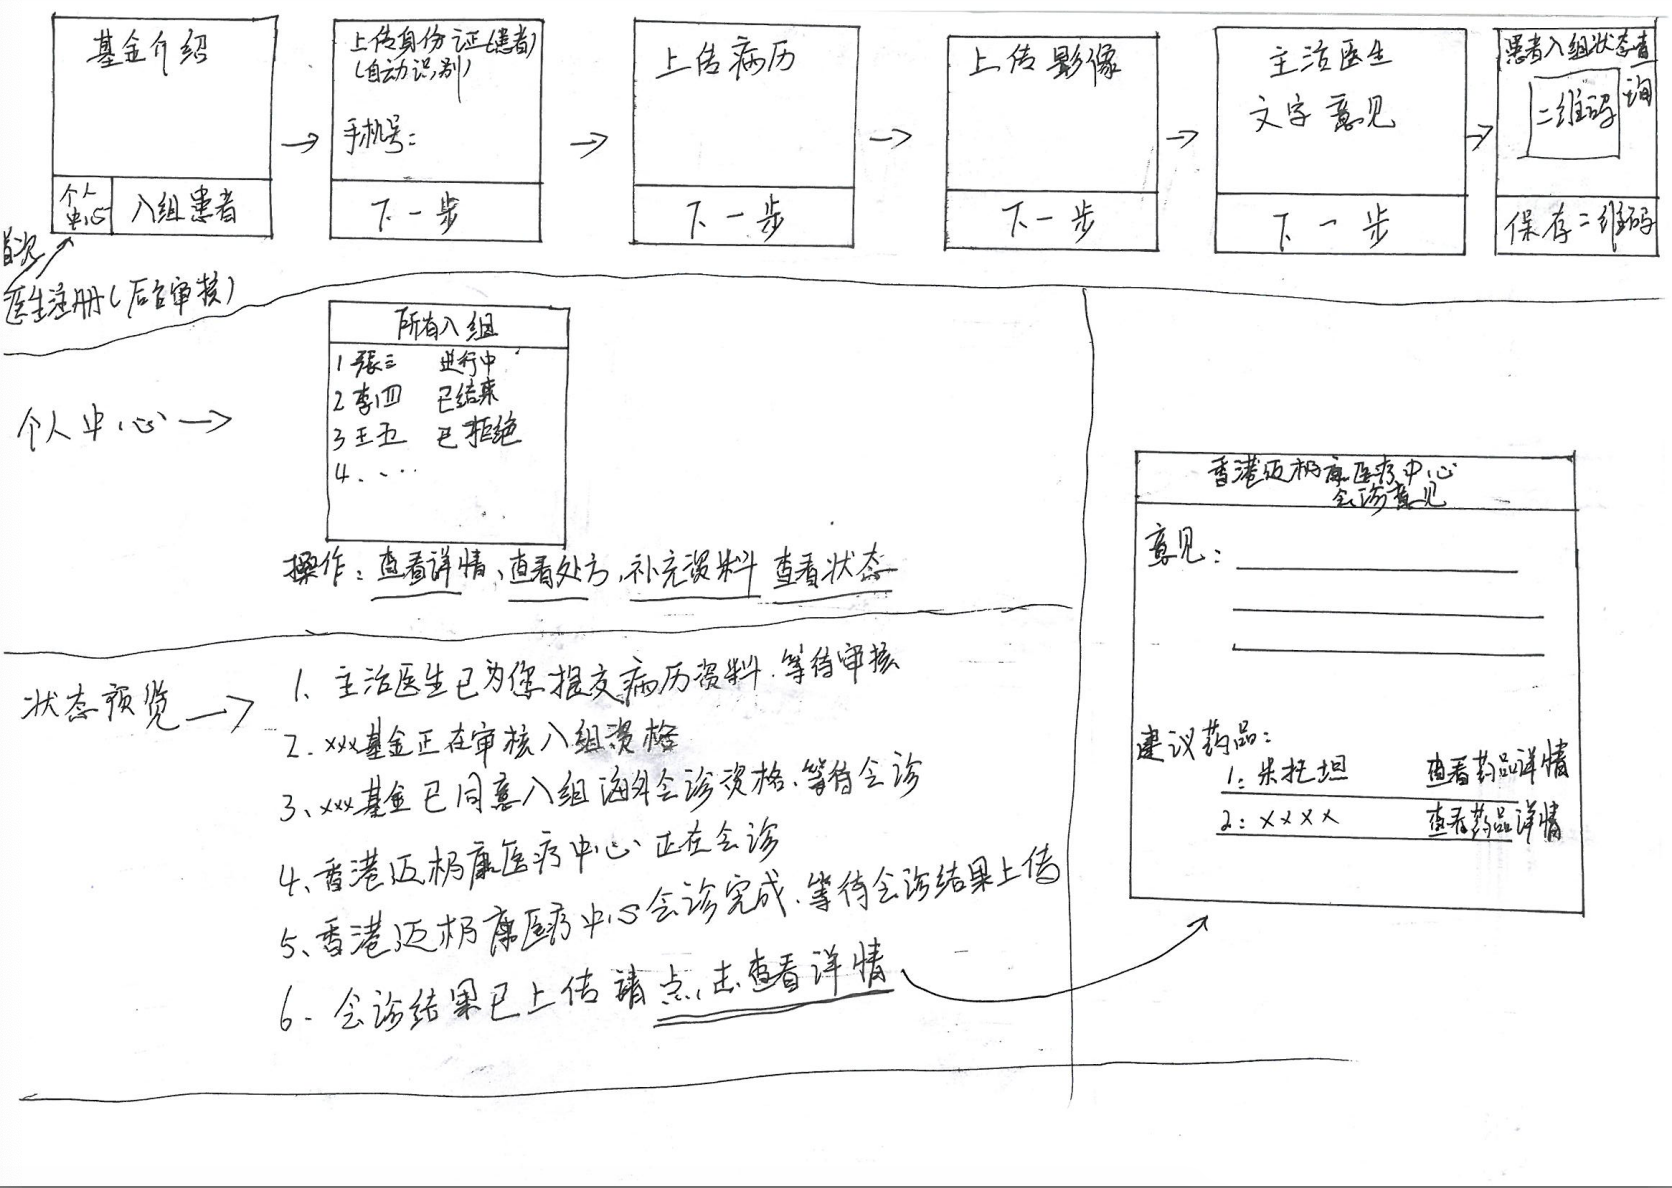 基金介绍
个人
中心
入组患者
首次
医生注册(后台审核)
上传身份证(患者)
(自动识别)
手机号:
下一步
上传病历
下一步
上传影像
下一步
主治医生
文字意见
下一步
患者入组状态查
询
二维码
保存二维码
个人中心
所有入组
1 张三 进行中
2 李四 已结束
3 王五 已拒绝
4、...
操作:查看详情、查看处方、补充资料 查看状态
状态预览
1、主治医生已为您提交病历资料.等待审核
2、xxx基金正在审核入组资格
3、xxx基金已同意入组海外会诊资格、等待会诊
4、香港迈极康医疗中心正在会诊
5、香港迈极康医疗中心会诊完成、等待会诊结果上传
6、会诊结果已上传请点击查看详情
香港迈极康医疗中心
会诊意见
意见:
建议药品:
1:朱托坦 查看药品详情
2:xxxx 查看药品详情